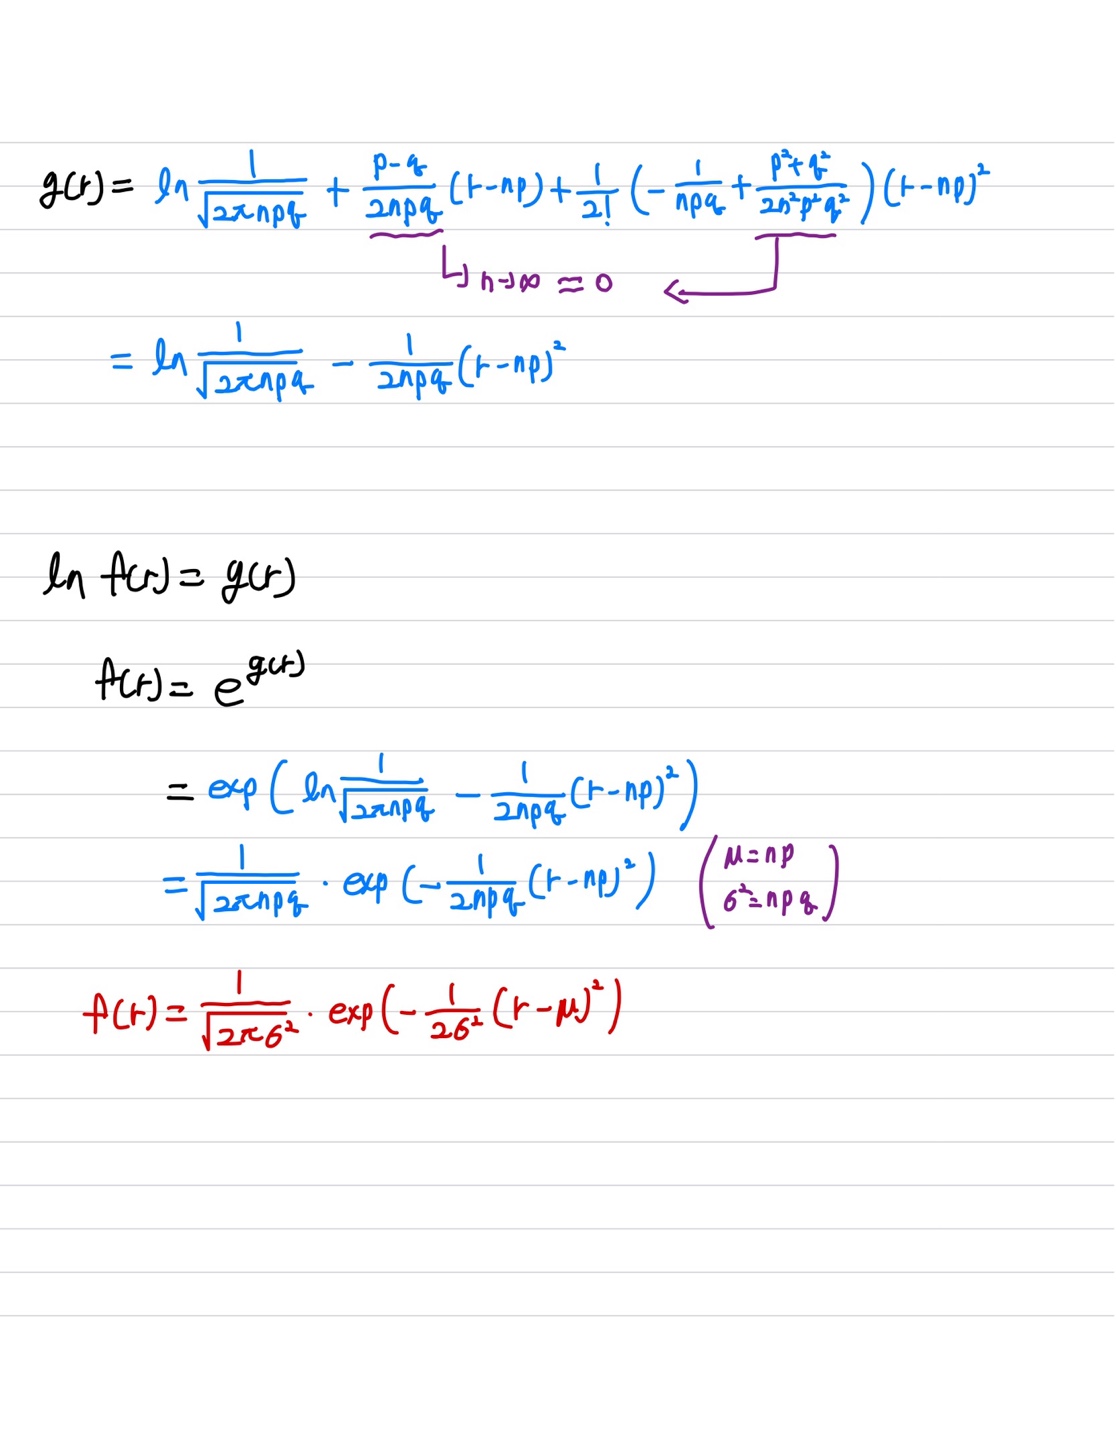 g(r) = ln 1/√(2πnpq) + (p-q)/(2npq) (r-np) + 1/2! (- 1/(npq) + (p²+q²)/(2n²p²q²)) (r-np)²
↳ n→∞ ≈ 0 ←
= ln 1/√(2πnpq) - 1/(2npq) (r-np)²
ln f(r) = g(r)
f(r) = e^g(r)
= exp( ln 1/√(2πnpq) - 1/(2npq) (r-np)² )
= 1/√(2πnpq) · exp(- 1/(2npq) (r-np)²) ( μ=np
σ²=npq )
f(r) = 1/√(2πσ²) · exp(- 1/(2σ²) (r-μ)²)